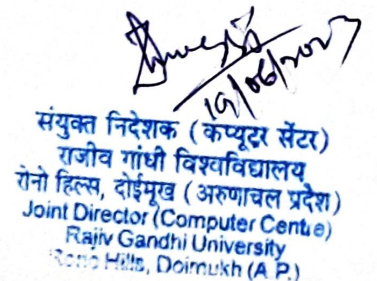 19/06/2023
संयुक्त निदेशक (कम्प्यूटर सेंटर)
राजीव गांधी विश्वविद्यालय
रोनो हिल्स, दोईमुख (अरुणाचल प्रदेश)
Joint Director (Computer Centre)
Rajiv Gandhi University
Rono Hills, Doimukh (A.P.)